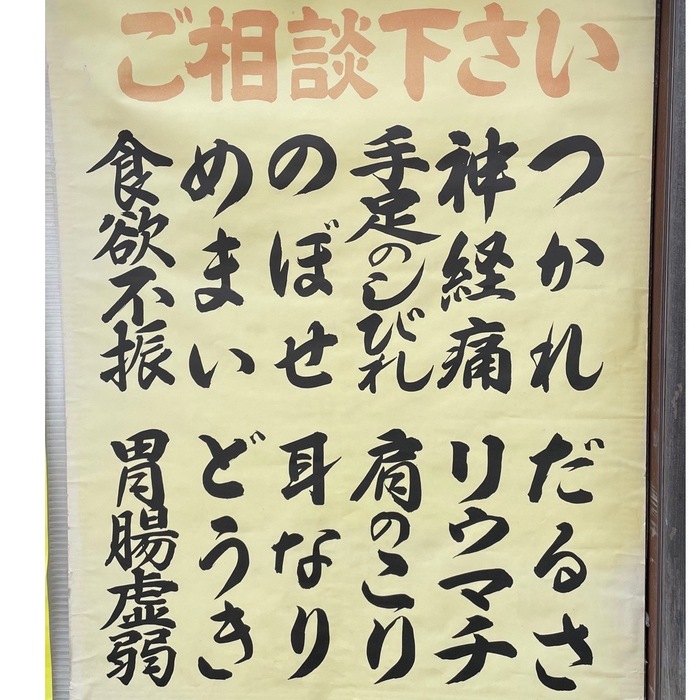 ご相談下さい
つかれ
神経痛
手足のしびれ
のぼせ
めまい
食欲不振
だるさ
リウマチ
肩のこり
耳なり
どうき
胃腸虚弱